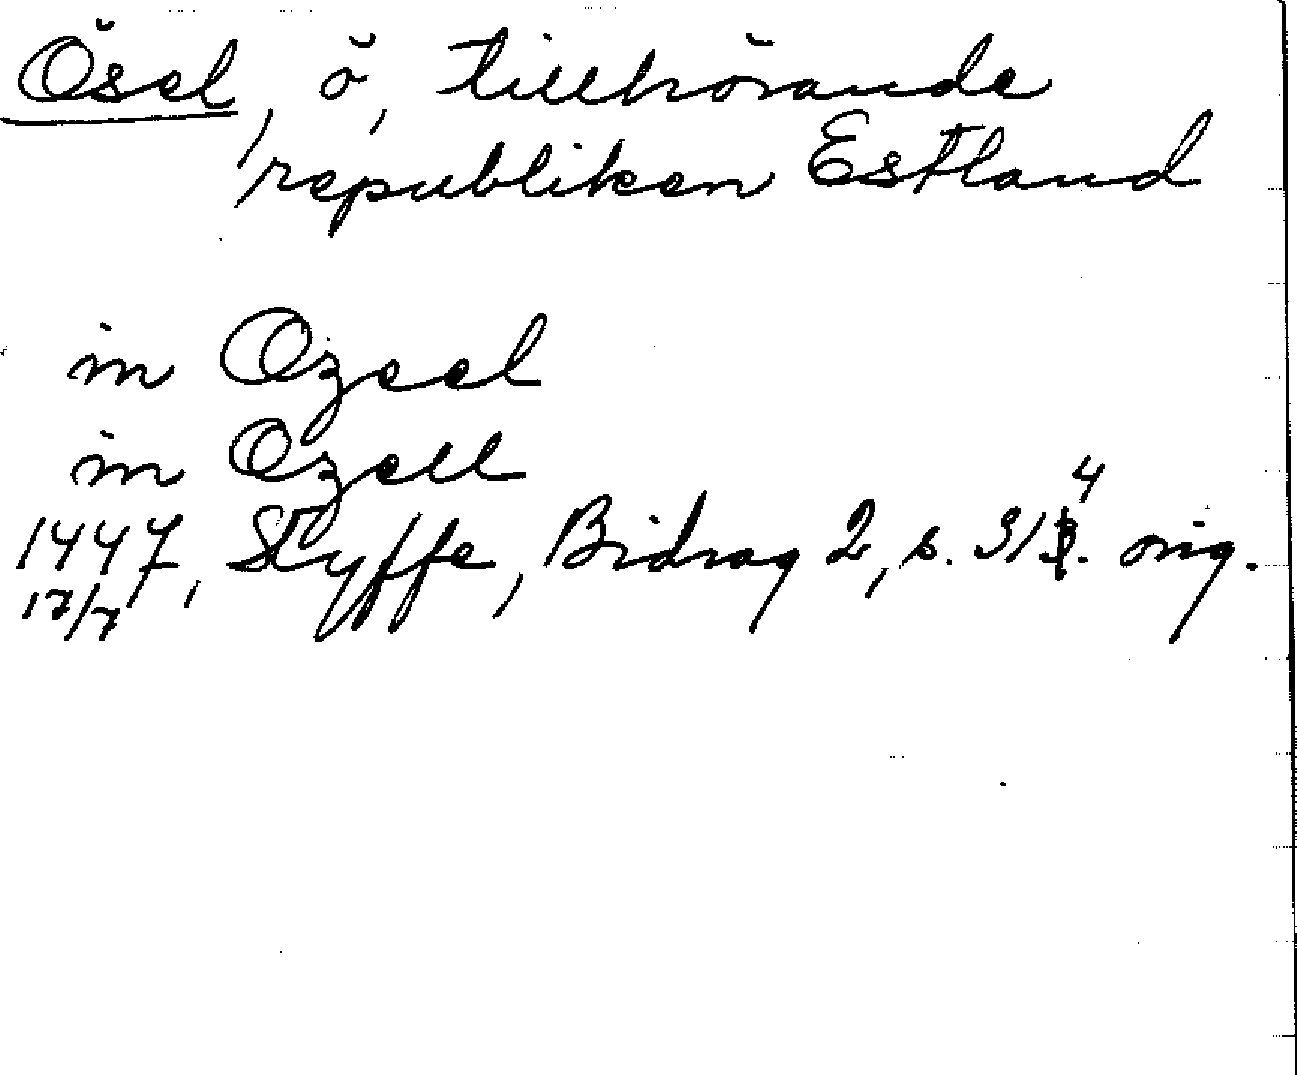 Ösel, ö, tillhörande
republiken Estland
in Ozeel
in Ozell
1447, Styffe, Bidrag 2, s. 314. orig.
17/7